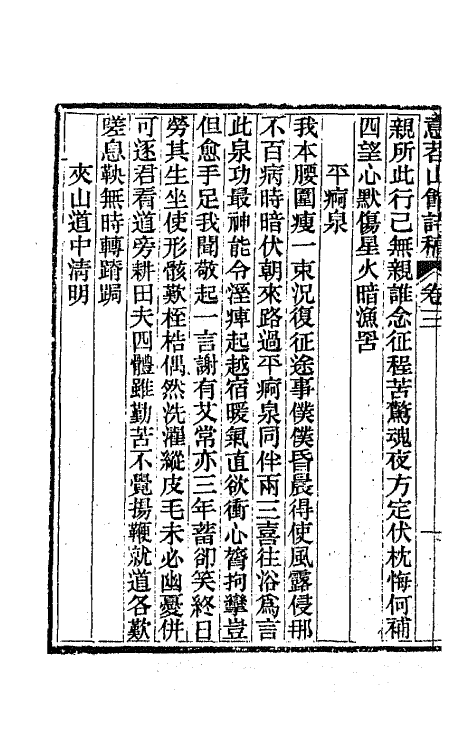 意苕山館詩稿 卷三
親所此行已無親誰念征程苦驚魂夜方定伏枕悔何補
四望心默傷星火暗漁罟
平痾泉
我本腰圍瘦一束況復征途事僕僕昏晨得使風露侵那
不百病時暗伏朝來路過平痾泉同伴兩三喜往浴爲言
此泉功最神能令溼痺起越宿暖氣直欲衝心膂拘攣豈
但愈手足我聞敬起一言謝有艾常亦三年蓄卻笑終日
勞其生坐使形骸歎桎梏偶然洗濯縱皮毛未必幽憂併
可逐君看道旁耕田夫四體雖勤苦不覺揚鞭就道各歎
嗟息鞅無時轉蹐跼
夾山道中清明